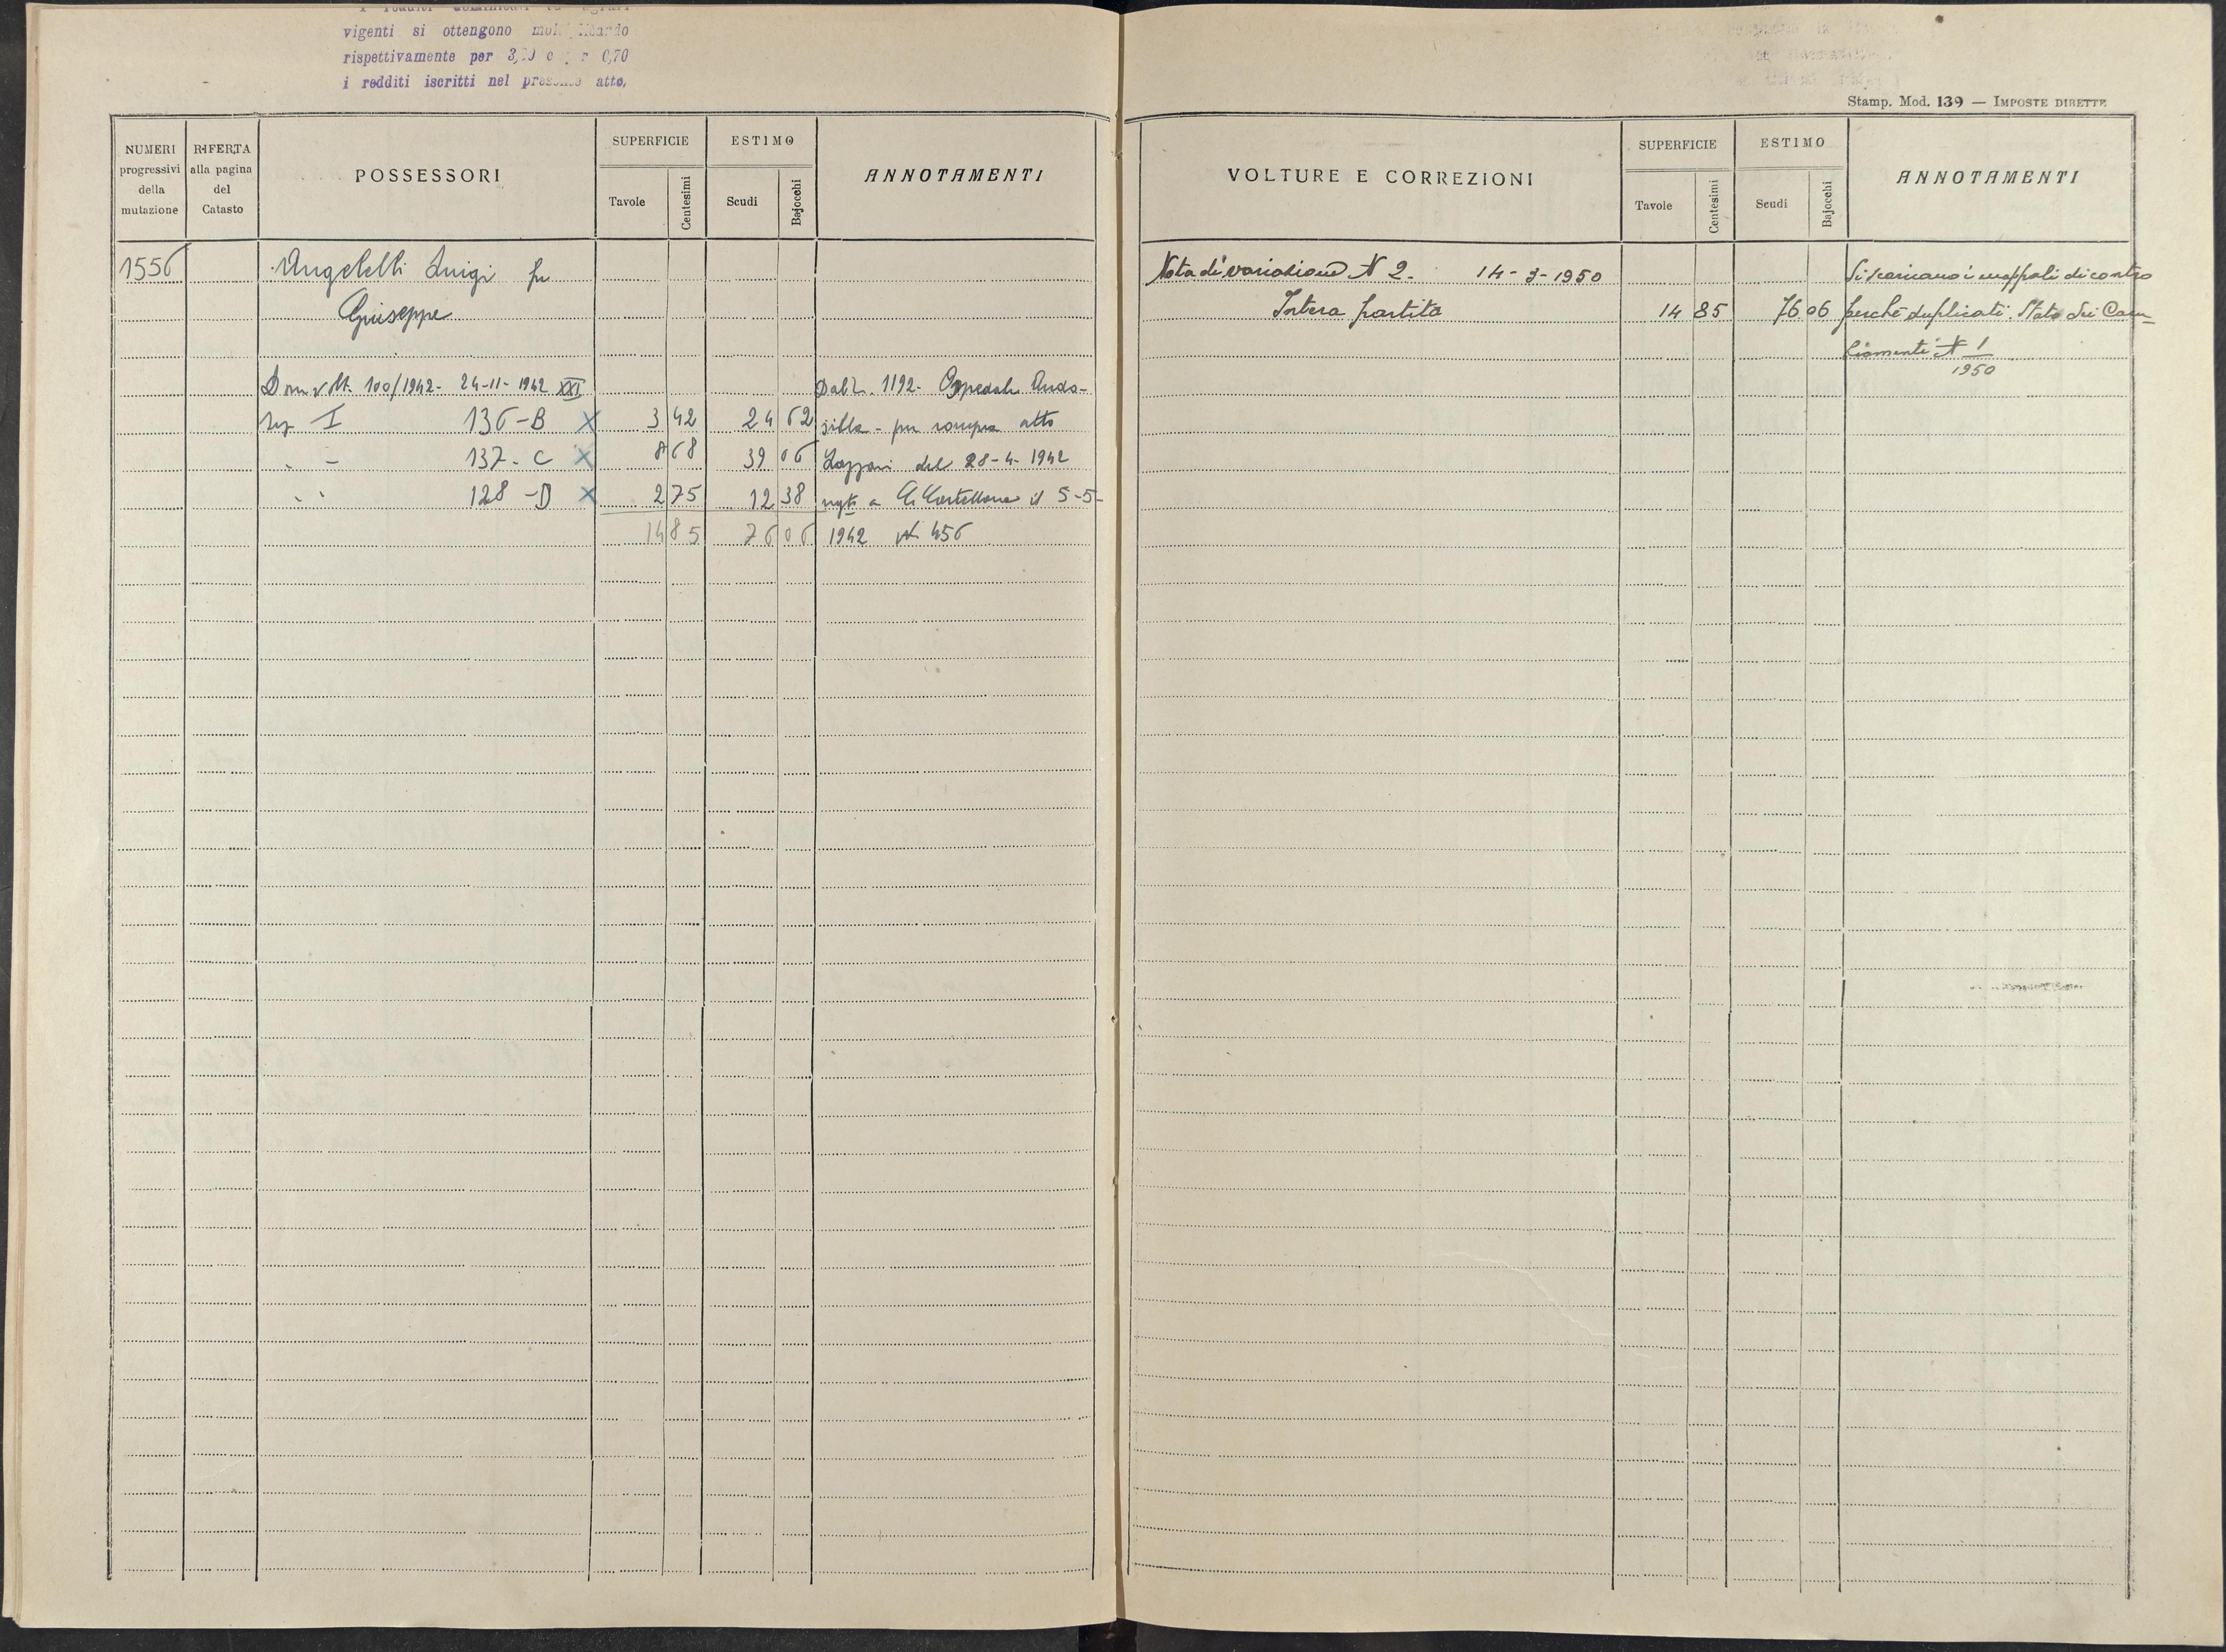 vigenti si ottengono
rispettivamente per 0,70
i redditi iscritti nel presente atto.
Stamp. Mod. 139 — IMPOSTE DIRETTE
NUMERI progressivi della mutazione
RIFERTA alla pagina del Catasto
POSSESSORI
SUPERFICIE
Tavole
Centesimi
ESTIMO
Scudi
Bajocchi
ANNOTAMENTI
1556
Angelelli Luigi fu
Giuseppe
Dom volt. 100/1942 - 24-11-1942 XXI
Dal N. 1192 - Ospedale Anda-
Sez I 136-B X 3 42 24 62 silla - per compra atto
" - 137-C X 8 68 39 06 Lazzari del 28-4-1942
" " 128-D X 2 75 12 38 a C. Castellana il 5-5-
14 85 76 06 1942 N 456
VOLTURE E CORREZIONI
SUPERFICIE
Tavole
Centesimi
ESTIMO
Scudi
Bajocchi
ANNOTAMENTI
Nota di variazione N 2. 14-3-1950 Si scaricano i mappali di contro
Intera partita 14 85 76 06 perchè duplicati. Stato dei Cam-
biamenti N 1
1950